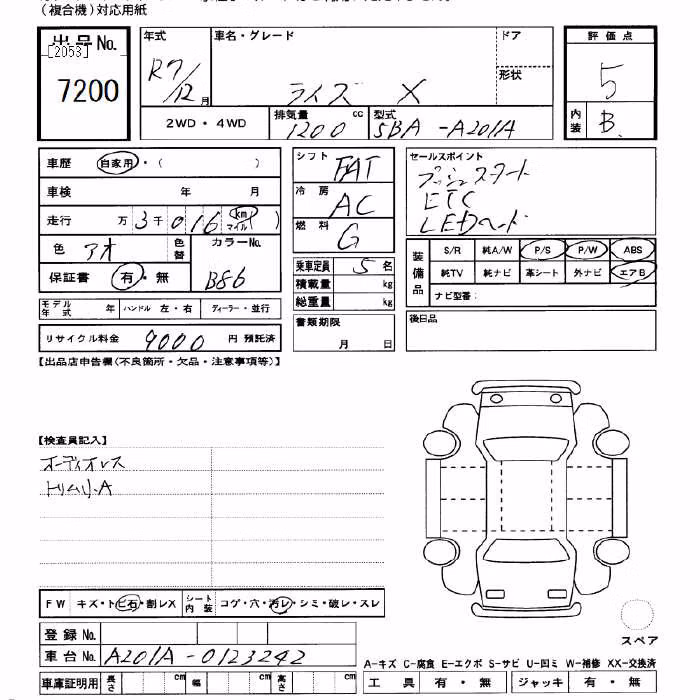 （複合機）対応用紙
出品No.
[2053]
7200
年式
R7/12月
車名・グレード
ライズ X
ドア
形状
2WD・4WD
排気量 1200 cc
型式 5BA-A201A
評価点
5
内装 B
車歴 自家用・（ ）
車検 年 月
走行 万 3千 0 1 6 (km マイル)
色 アオ 色替
カラーNo. B86
保証書 有・無
モデル年式 年 ハンドル 左・右 ディーラー・並行
リサイクル料金 9000 円 預託済
シフト FAT
冷房 AC
燃料 G
乗車定員 5 名
積載量 kg
総重量 kg
書類期限
月 日
セールスポイント
プッシュスタート
ETC
LEDヘッド
装備品
S/R 純A/W P/S P/W ABS
純TV 純ナビ 革シート 外ナビ エアB
ナビ型番：
後日品
【出品店申告欄（不良箇所・欠品・注意事項等）】
【検査員記入】
オーディオレス
トリムリ.A
FW キズ・トビ石・割レX シート内装 コゲ・穴・汚レ・シミ・破レ・スレ
登録No.
車台No. A201A-0123242
車庫証明用 長さ cm 幅 cm 高さ cm
スペア
A-キズ C-腐食 E-エクボ S-サビ U-凹ミ W-補修 XX-交換済
工具 有・無 ジャッキ 有・無